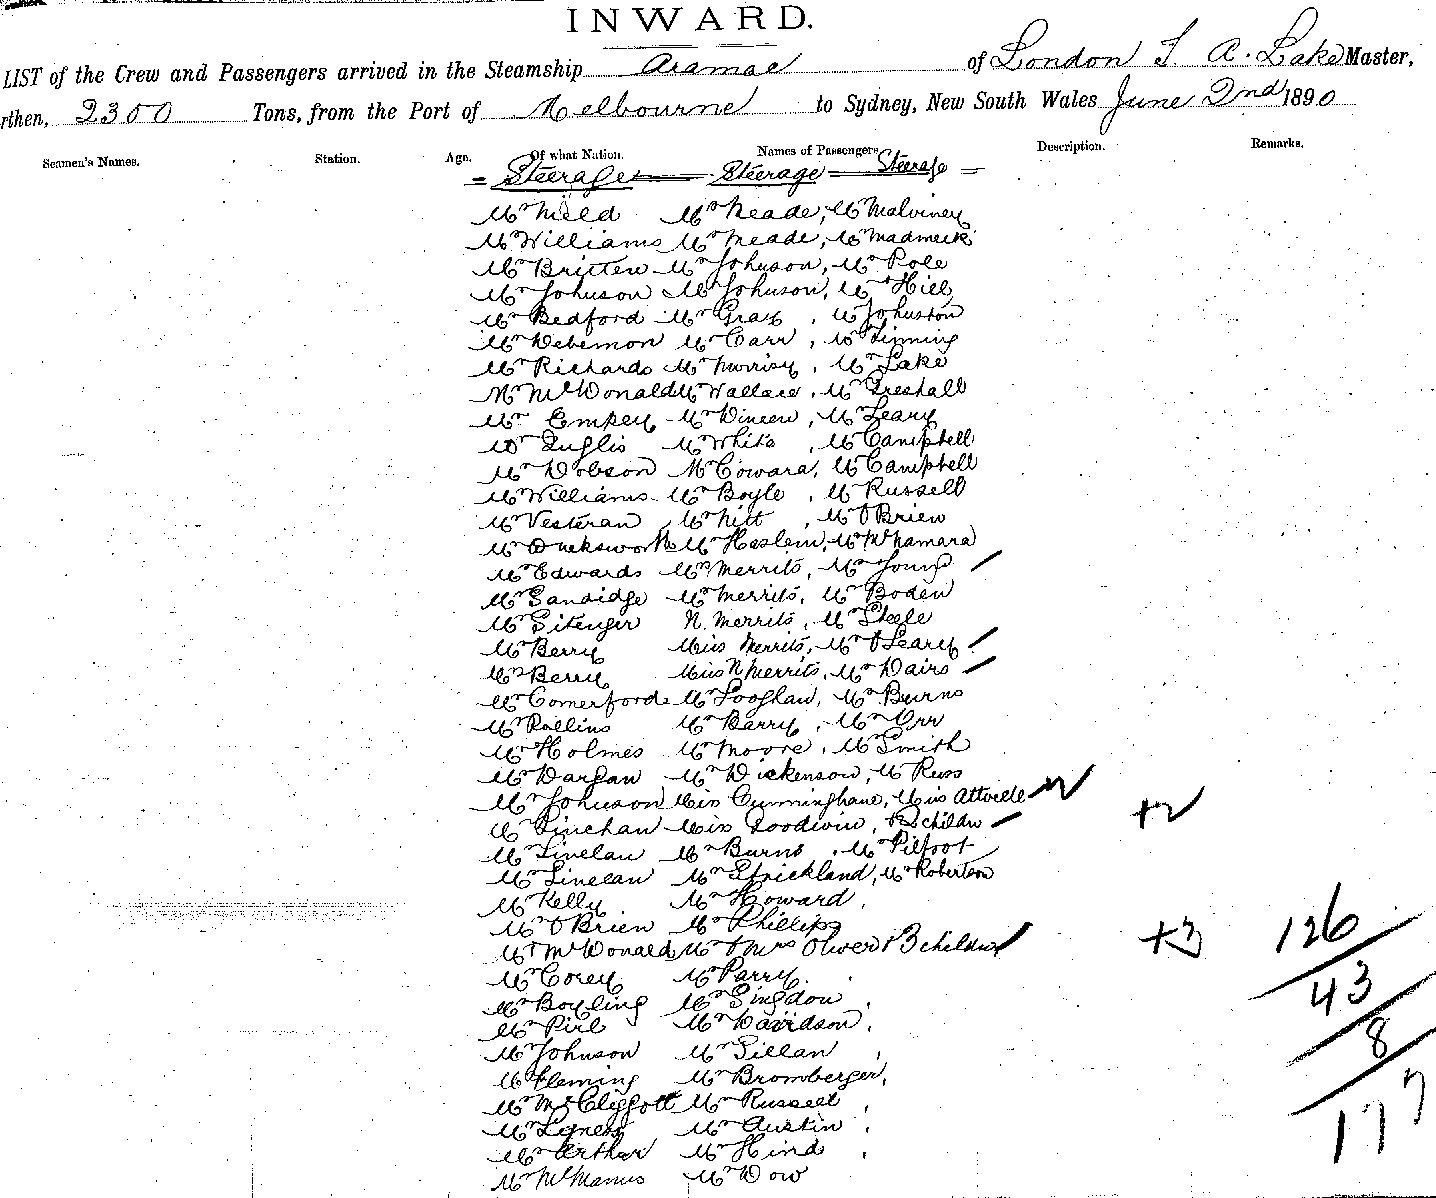 INWARD.
LIST of the Crew and Passengers arrived in the Steamship Aramac of London T A. Lake Master,
rthen, 2300 Tons, from the Port of Melbourne to Sydney, New South Wales June 2nd 1890
Seamen's Names. Station. Age. Of what Nation. Names of Passengers Description. Remarks.
= Steerage = Steerage = Steerage =
Mr Nield Mrs Meade, Mr Malviney
Mr Williams Mr Meade, Mr
Mr Britten Mr Johnson, Mr Pole
Mr Johnson Mr Johnson, Mr Hill
Mr Bedford Mr Gray, Mr Johnston
Mr Debemon Mr Carr, Mr
Mr Richards Mr Morrisy, Mr Lake
Mr McDonald Mr Wallace, Mr Greshall
Mr Empey Mr Dineen, Mr Leary
Mr Inglis Mr White, Mr Campbell
Mr Dobson Mr Coward, Mr Campbell
Mr Williams Mr Boyle, Mr Russell
Mr Vesteran Mr Nitt, Mr O'Brien
Mr Ducksworth Mr Haslem, Mr McNamara
Mr Edwards Mrs Merrits, Mr Young
Mr Sandidge Mr Merrits, Mr Boden
Mr N. Merrits, Mr Steele
Mr Berry Miss Merrits, Mr O'Leary
Mrs Berry Miss N Merrits, Mr Dairs
Mr Comerford Mr, Mr Burns
Mr Rollins Mr Barry, Mr Orr
Mr Holmes Mr Moore, Mr Smith
Mr Dargan Mr Dickenson, Mr Russ
Mr Johnson Miss Cunninghame, Miss Attville
Mr Linehan Miss Goodwin, & 2 childn +2
Mr Linelan Mr Burns, Mr Pilfoot
Mr Linelan Mr Strickland, Mr Robertson
Mr Kelly Mr Howard,
Mr O'Brien Mr Phillips
Mr McDonald Mr & Mrs Oliver & 3 children +3 126
Mr Corey Mr Parry 43
Mr Boyling Mr Singdon,
Mr Pirl Mr Davidson, 8
Mr Johnson Mr Gillan,
Mr Fleming Mr Bromberger,
Mr McCliggott Mr Russell, 177
Mr Lyness Mr Austin,
Mr Arthur Mr Hind,
Mr McManus Mr Dow